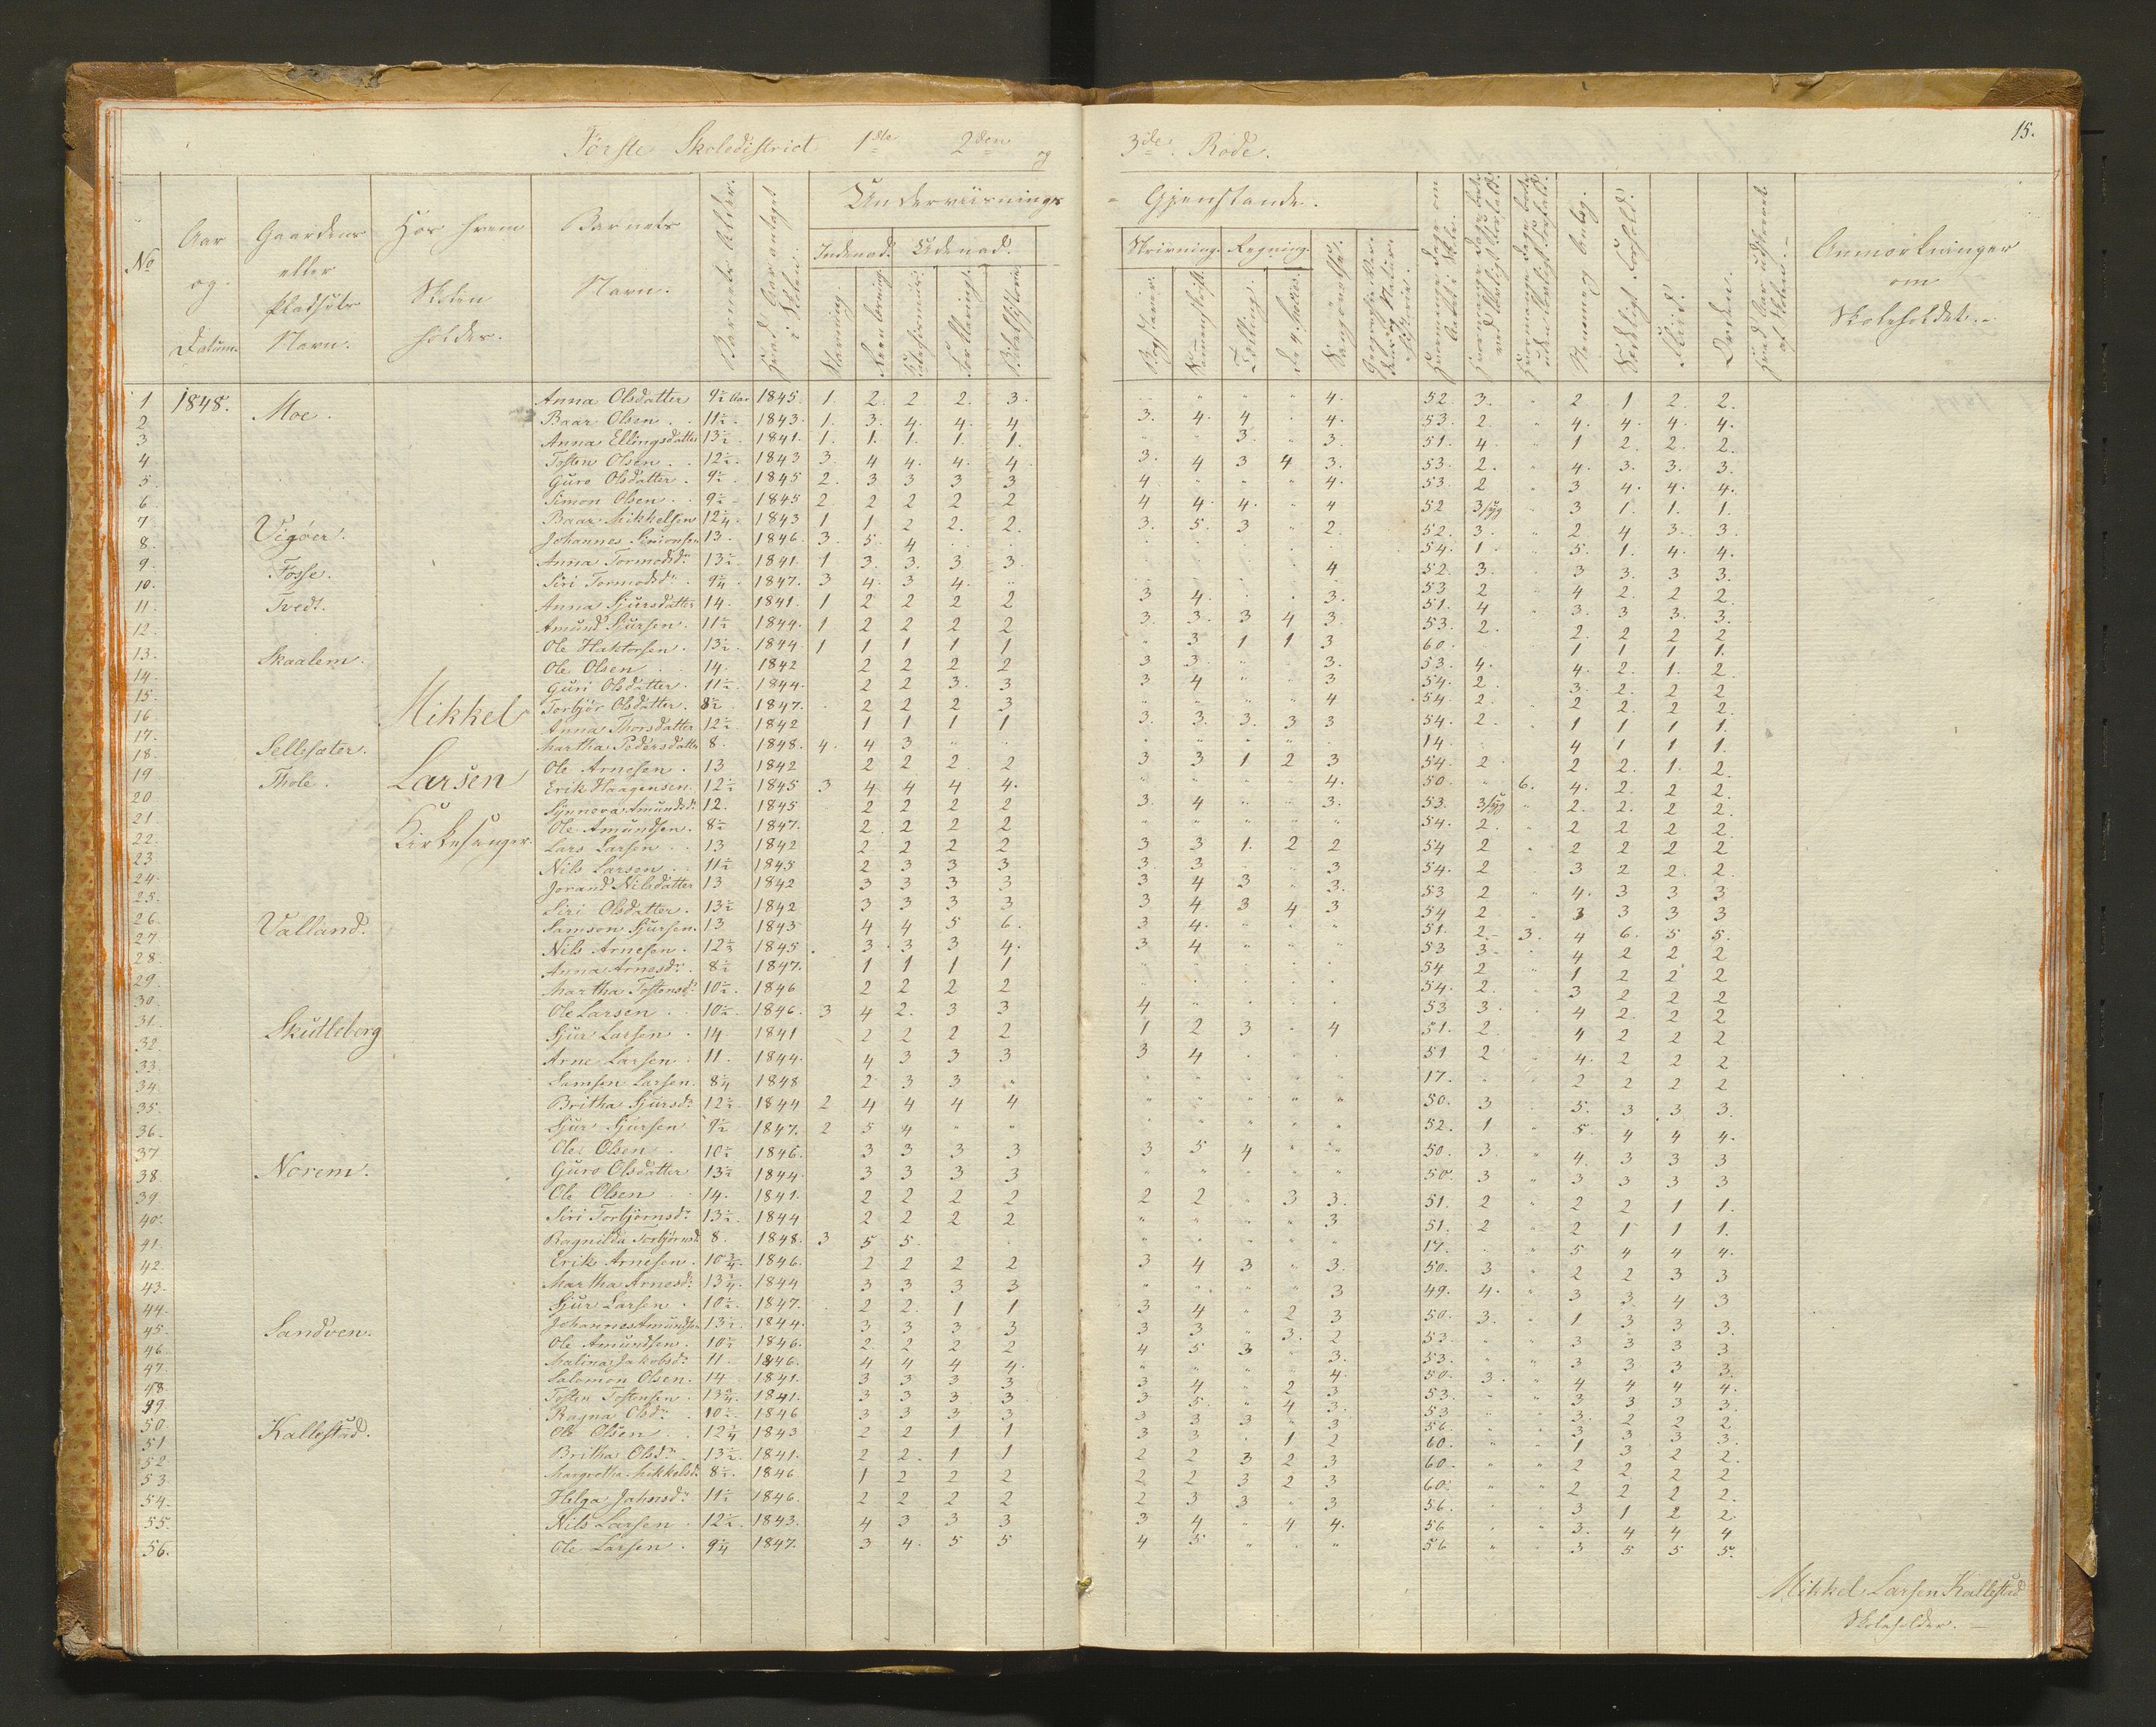 Første Skoledistrict 1ste 2den og 3die Rode.
15.
No
Aar og Datum.
Gaardens eller Pladsets Navn.
Hos hvem Skolen holdes.
Barnets Navn.
Barnets Alder.
Underviisnings-Gjenstande.
Indenad. Udenad.
Skrivning. Regning.
Anmærkninger om Skoleholdet.
1 1848. Moe. Anna Olsdatter 9½ Aar 1845. 1. 2. 2 2. 3. " " " " 4. 52. 3. " 2 1 2. 2.
2 Baar Olsen 11½ 1843. 1. 3. 4. 4. 4 3. 4. 4 " 4. 53. 2. " 4. 4. 4. 4.
3 Anna Ellingsdatter 13½ 1841. 1. 1. 1. 1. 1. " " 3. " 3. 51. 4. " 1 2. 2. 2.
4 Tosten Olsen 12½ 1843 3. 4 4. 4. 4 3. 4 3 4 3. 53. 2. " 4. 3. 3. 3.
5 Guro Olsdatter 9½ 1845 2. 3 3 3 3 4. " " " 4. 53. 2 " 3 4. 4. 4.
6 Simon Olsen 9½ 1845 2 2 2 2 2 4 4. 4. " 4 52 3/syg " 3 1. 1. 1.
7 Baar Mikkelsen 12¼ 1843 1 1 2 2. 2. 3. 5. 3 " 2. 52. 3. " 2 4 3. 3.
8 Vigøer. Johannes Simonsen 13. 1846. 3. 5. 4 54. 1 5. 1. 4. 4.
9 Fosse. Anna Tormodsdr 13½ 1841. 1 3. 3. 3. 3. 4 52. 3. 3 3. 3 3.
10. Siri Tormodsdr 9¼ 1847. 3 4. 3 4. 53 2 4 2. 2 2.
11. Tvedt. Anna Sjursdatter 14. 1841. 1 2 2 2 2 3 4. 3. 51. 4 3. 3 3. 3.
12. Amund Sjursen 11½ 1844. 1 2 2 2 2 3. 3. 3 4 3. 53. 2. 2. 2 2 2
13. Skaalem. Ole Haktorsen 13½ 1844. 1 1 1 1 1 " 3 1 1 3 60. 1 1 1 1.
14. Ole Olsen 14. 1842 2 2 2 2 3 3 " " 3. 53. 4. 4. 2. 1. 2.
15. Guri Olsdatter 11½ 1844. 2 2 3. 3 3 4 " " 3 54. 2. 3. 2. 2 2
16. Mikkel Torbjør Olsdatter 8½ 1847. 2 2 2 3 " " " " 4 54. 2. 2 2. 2. 2.
17. Anna Thorsdatter 12½ 1842 1 1 1 1 3. 3. 3. 3 3 54. 2. 1 1 1 1.
18. Sellesæter. Martha Pedersdatter 8. 1848. 4. 4 3 14. 4 1 1 1.
19 Thole. Larsen Ole Arnesen 13 1842 2 2 2 2 3 3 1 2 3 54. 2 2 2. 1. 2.
20 Erik Haagensen 12½ 1845 3 4 4 4 4. " " " " 4. 50. " 6. 4. 2. 2 2.
21. Synneva Amundsdr 12. 1845 2 2 2 2 3. 4 " " 3. 53. 3/syg " 2. 2. 2 2.
22. Kirkesanger. Ole Amundsen 8½ 1847. 2. 2 2 2 54. 2. 2 2 2 2.
23 Lars Larsen 13 1842 2 2 2 2 3 3 1. 2 2 54 2 2 2 2 2
24. Nils Larsen 11½ 1845 2 3 3 3 3. 3 3 54. 2 3 2 2. 2.
25. Jorand Nilsdatter 13 1842 3 3 3 3 3 4 3 " 3. 53 2 4. 3 3 3
26. Siri Olsdatter 13½ 1842 3 3 3 3 3 4 3 4 3 54 2 3 3 3 3
27. Valland. Samson Sjursen 13 1843 4 4 5 6. 3 4. " " " 51. 2. 3. 4 6. 5 5.
28. Nils Arnesen 12⅓ 1845. 3. 3 3 4. 3 4 " " " 53 3. 4 2 2 2
29. Anna Arnesdr 8½ 1847. 1 1 1 1 54 2 1 2 2 2
30. Martha Tostensdr 10½ 1846 2 2 2 2 54. 2. 3 2 2 2
31. Ole Larsen 10½ 1846. 3 4 2. 3 3 4 53 3. 4 2. 2. 2
32. Skutleberg Sjur Larsen 14 1841 2 2 2 2 1 2 3 4 51. 2 4 2 2 2
33. Arne Larsen 11. 1844. 4 3 3 3 3 4 51 2 4. 2 2 2
34. Samson Larsen 8¼ 1848 2 3 3 " 17. 2 2 2 2
35. Britha Sjursdr 12½ 1844 2 4 4 4 4 " " " " " 50. 3 5. 3 3 3.
36. Sjur Sjursen 9½ 1847. 2 5 4 " " " " " " " 52. 1 " 5. 4 4 4.
37 Ole Olsen 10½ 1846. 3 3 3 3 3 5 4 " " 50. 3. " 4. 3 3 3
38. Norem. Guro Olsdatter 13½ 1844. 3 3 3 3 " " " " " 50. 3 " 3 3 3 3
39. Ole Olsen 14. 1841. 2 2 2 2 2 2 " 3 3. 51. 2 " 2 2 1 1.
40. Siri Torbjørnsdr 13½ 1844 2 2 2 2 " " " " 3 51. 2 " 2 1 1 1.
41. Ragnilda Torbjørnsd. 8. 1848. 3 5 5 17. 5 4 4 4.
42. Erik Arnesen 10¾ 1846. 2 2 2 2 3 4 3 " 3. 50. 3 " 2 2 3 3
43. Martha Arnesdr 13¾ 1844 3 3 3 3 " " " " 3 49. 4. " 3 3 4 3
44. Sjur Larsen 10½ 1847. 2 2. 1 1 3 4 " 2 3 50. 3. " 1 3 3 3.
45. Sandven. Johannes Amundsen 13½ 1844. 3 3 3 3 3 3 " 3. 2 53. " " 3 3 3 3
46. Ole Amundsen 10½ 1846. 2 2 2 2 4 5 3 " 3. 53. " " 3 3 3 3.
47. Malina Jakobsdr 11. 1846. 4 4 4 4. " " " " 4. 50. 3. " 4 4 4 4.
48. Salomon Olsen 14 1841. 3 3 3 3 3 4 " 2 3 53. " " 3 3 3 3.
49. Tosten Tostensen 13¾ 1841. 3 3 3 3 3 5 " 4 3. 53 " " 3. 2 2 2.
50. Ragna Olsdr 10½ 1846 3 3 3 3 3 3 3 " 3 56. " " 3 3 3 3.
51 Kallestad. Ole Olsen 12¼ 1843 2 2 1 1 3 3 " 1 2 60. " " 1 3 2 2.
52 Britha Olsdr 13½ 1841. 2 2. 1 1 2 2 3 2 3 60. " " 2 2 2 2
53 Margretha Mikkelsd. 8½ 1846 1 2 2 2 2 2 3 2 3 60. " " 2 2 2 2.
54. Helga Jahnsdr 11½ 1846. 2 2 2 2 2 3 3 " 3 56. " " 3 1 2 2.
55. Nils Larsen 12½ 1843. 4 3 3 3 3 4 " 4 4. 56 " " 3. 4 4 4
56. Ole Larsen 9¼ 1847. 3 4. 5 5 4 5 " " " 56 " " 3 5 5 5.
Mikkel Larsen Kallestad
Skoleholder.